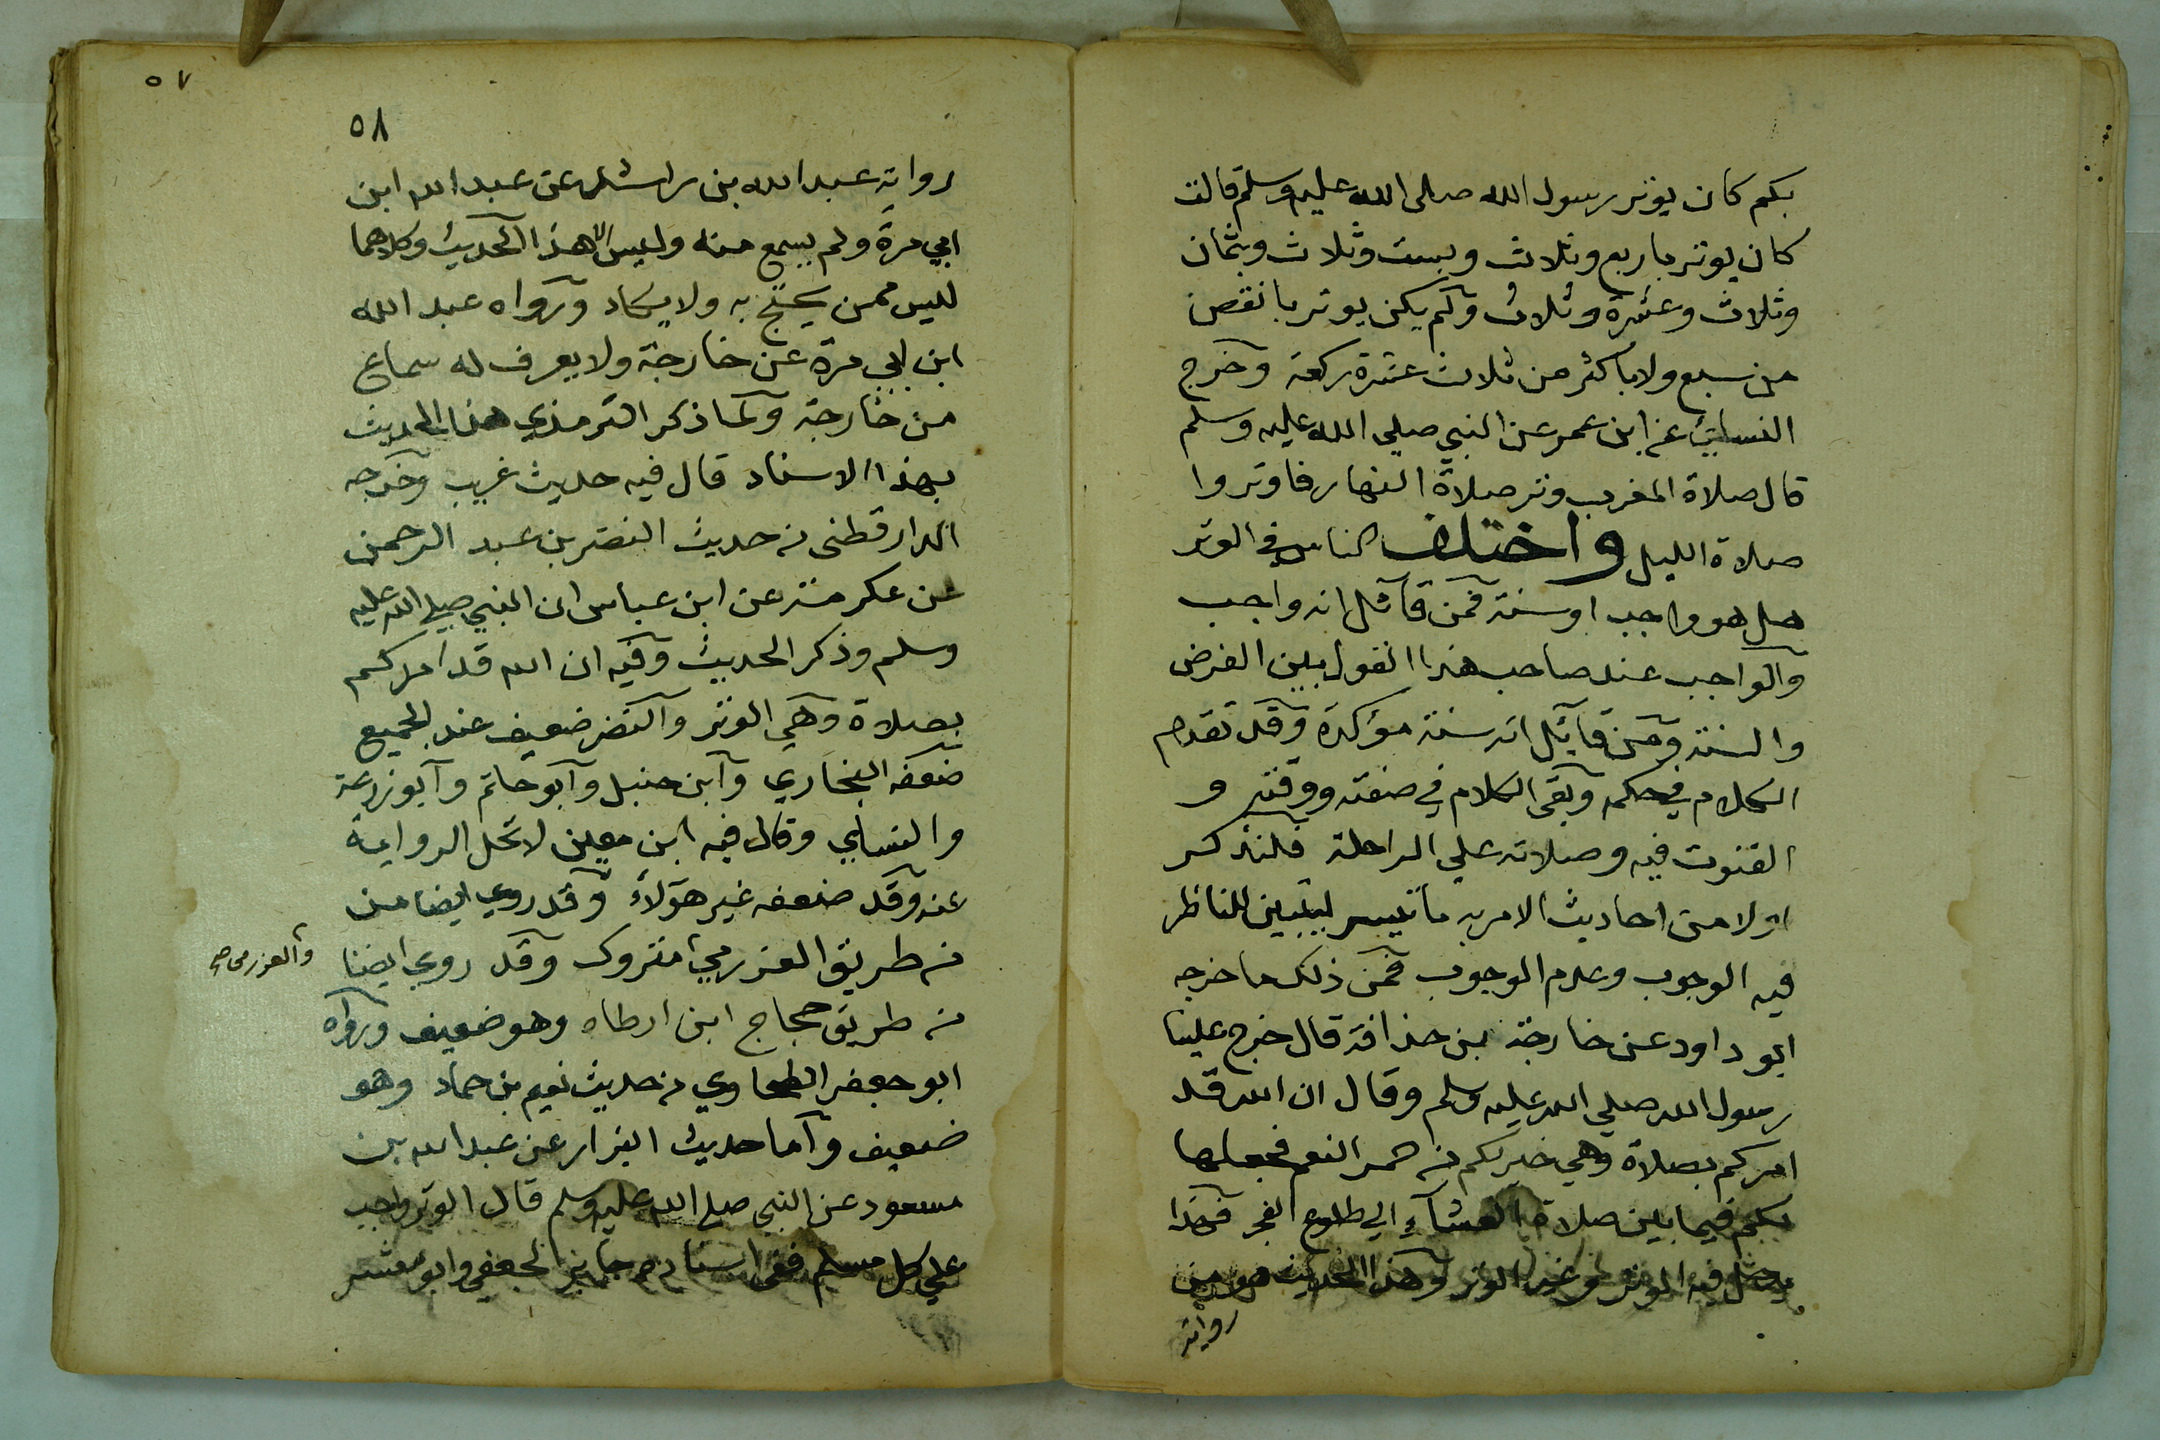 بكم كان يوتر رسول الله صلى الله عليه وسلم قالت
كان يوتر باربع وثلاث وبست وثلاث وبثمان
وثلاث وعشرة وثلاث ولم يكن يوتر بانقص
من سبع ولا باكثر من ثلاث عشرة ركعة وخرج
النسايي عن ابن عمر عن النبي صلي الله عليه وسلم
قال صلاة المغرب وتر صلاة النهار فاوتروا
صلاة الليل واختلف الناس في الوتر
هل هو واجب او سنة فمن قائل انه واجب
والواجب عند صاحب هذا القول بين الفرض
والسنة ومن قايل انه سنة مؤكدة وقد تقدم
الكلام في حكمه وبقى الكلام في صفته ووقته و
القنوت فيه وصلاته علي الراحلة فلنذكر
اولا من احاديث الامر به ما تيسر ليتبين للناظر
فيه الوجوب وعدم الوجوب فمن ذلك ما خرجه
ابو داود عن خارجة بن حذافة قال خرج علينا
رسول الله صلي الله عليه وسلم وقال ان الله قد
امركم بصلاة وهي خير لكم من حمر النعم فجعلها
لكم فيما بين صلاة العشآء الي طلوع الفجر فهذا
يدخل فيه الوتر وغير الوتر وهذا الحديث هو من
رواية
٥٧
٥٨
رواية عبد الله بن راشد عن عبد الله ابن
ابي مرة ولم يسمع منه وليس الا هذا الحديث وكلاهما
ليس ممن يحتج به ولا يكاد ورواه عبد الله
ابن ابي مرة عن خارجة ولا يعرف له سماع
من خارجة ولما ذكر الترمذي هذا الحديث
بهذا الاسناد قال فيه حديث غريب وخرجه
الدارقطنى من حديث النضر بن عبد الرحمن
عن عكرمة عن ابن عباس ان النبي صلي الله عليه
وسلم وذكر الحديث وفيه ان الله قد امركم
بصلاة وهي الوتر والنضر ضعيف عند الجميع
ضعفه البخاري وابن حنبل وابو حاتم وابو زرعة
والنسايي وقال فيه ابن معين لا تحل الرواية
عنه وقد ضعفه غير هؤلاء وقد روي ايضا من
من طريق العزرمي متروك وقد روي ايضا
والعزرمى صح
من طريق حجاج ابن ارطاه وهو ضعيف ورواه
ابو جعفر الطحاوي من حديث نعيم بن حماد وهو
ضعيف واما حديث البزار عن عبد الله بن
مسعود عن النبي صلي الله عليه وسلم قال الوتر واجب
علي كل مسلم ففى اسناده جابر الجعفي وابو معشر